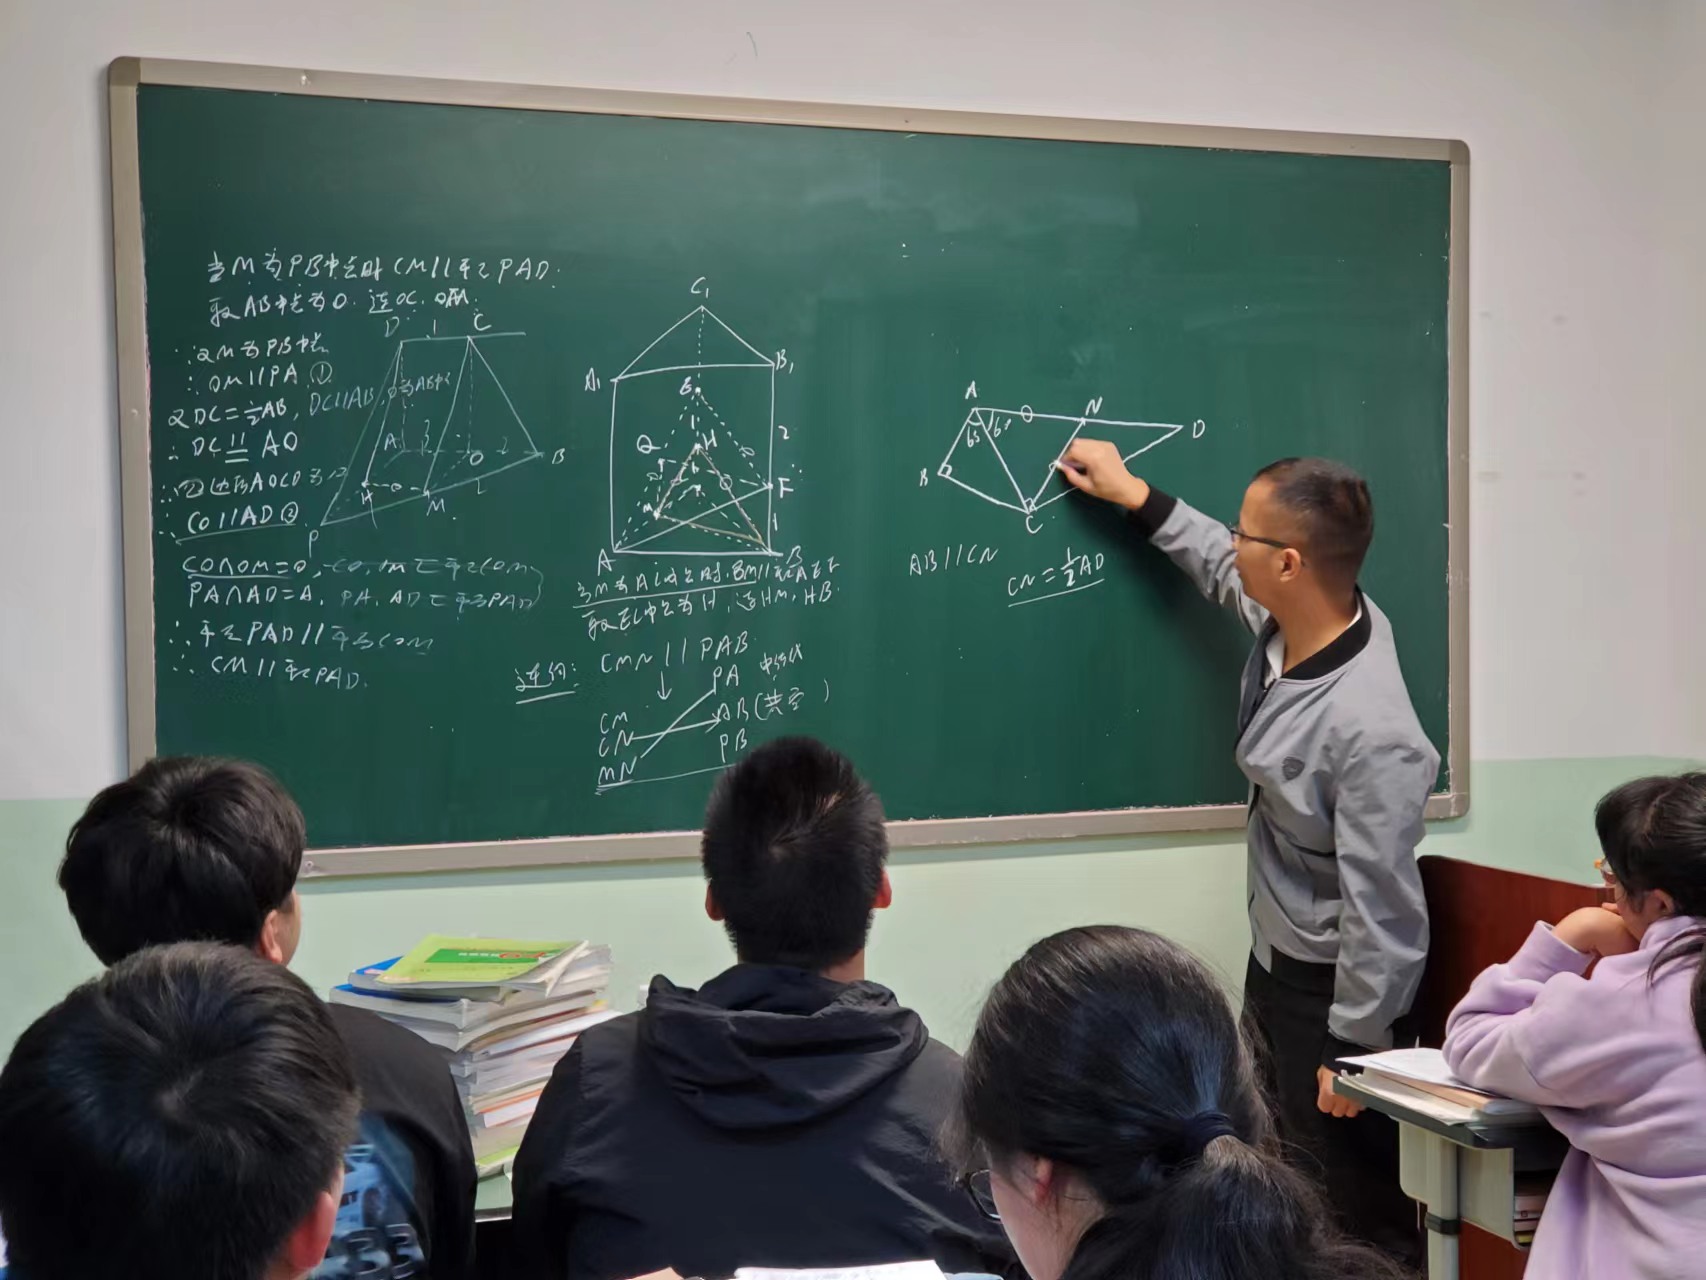 当M为PB中点时CM//平面PAD.
取AB中点为O.连OC.OM.
∵又M为PB中点
∴OM//PA ①
又DC=½AB, DC//AB, O为AB中点
∴DC∥=AO
∴四边形AOCD为▱
∴CO//AD ②
CO∩OM=O, CO,OM⊂平面COM
PA∩AD=A, PA,AD⊂平面PAD
∴平面PAD//平面COM
∴CM//平面PAD.
D 1 C
A O 2 B
H M 2
P
C₁
A₁ B₁
E
1
Q H 2
F
M 1
A B
当M为AC中点时,BM//平面AEF
取EC中点为H,连HM,HB.
逆向: CMN//PAB
↓ PA 中位线
CM
CN AB(共面)
MN PB
A N D
B 60 60
C
AB//CN
CN=½AD